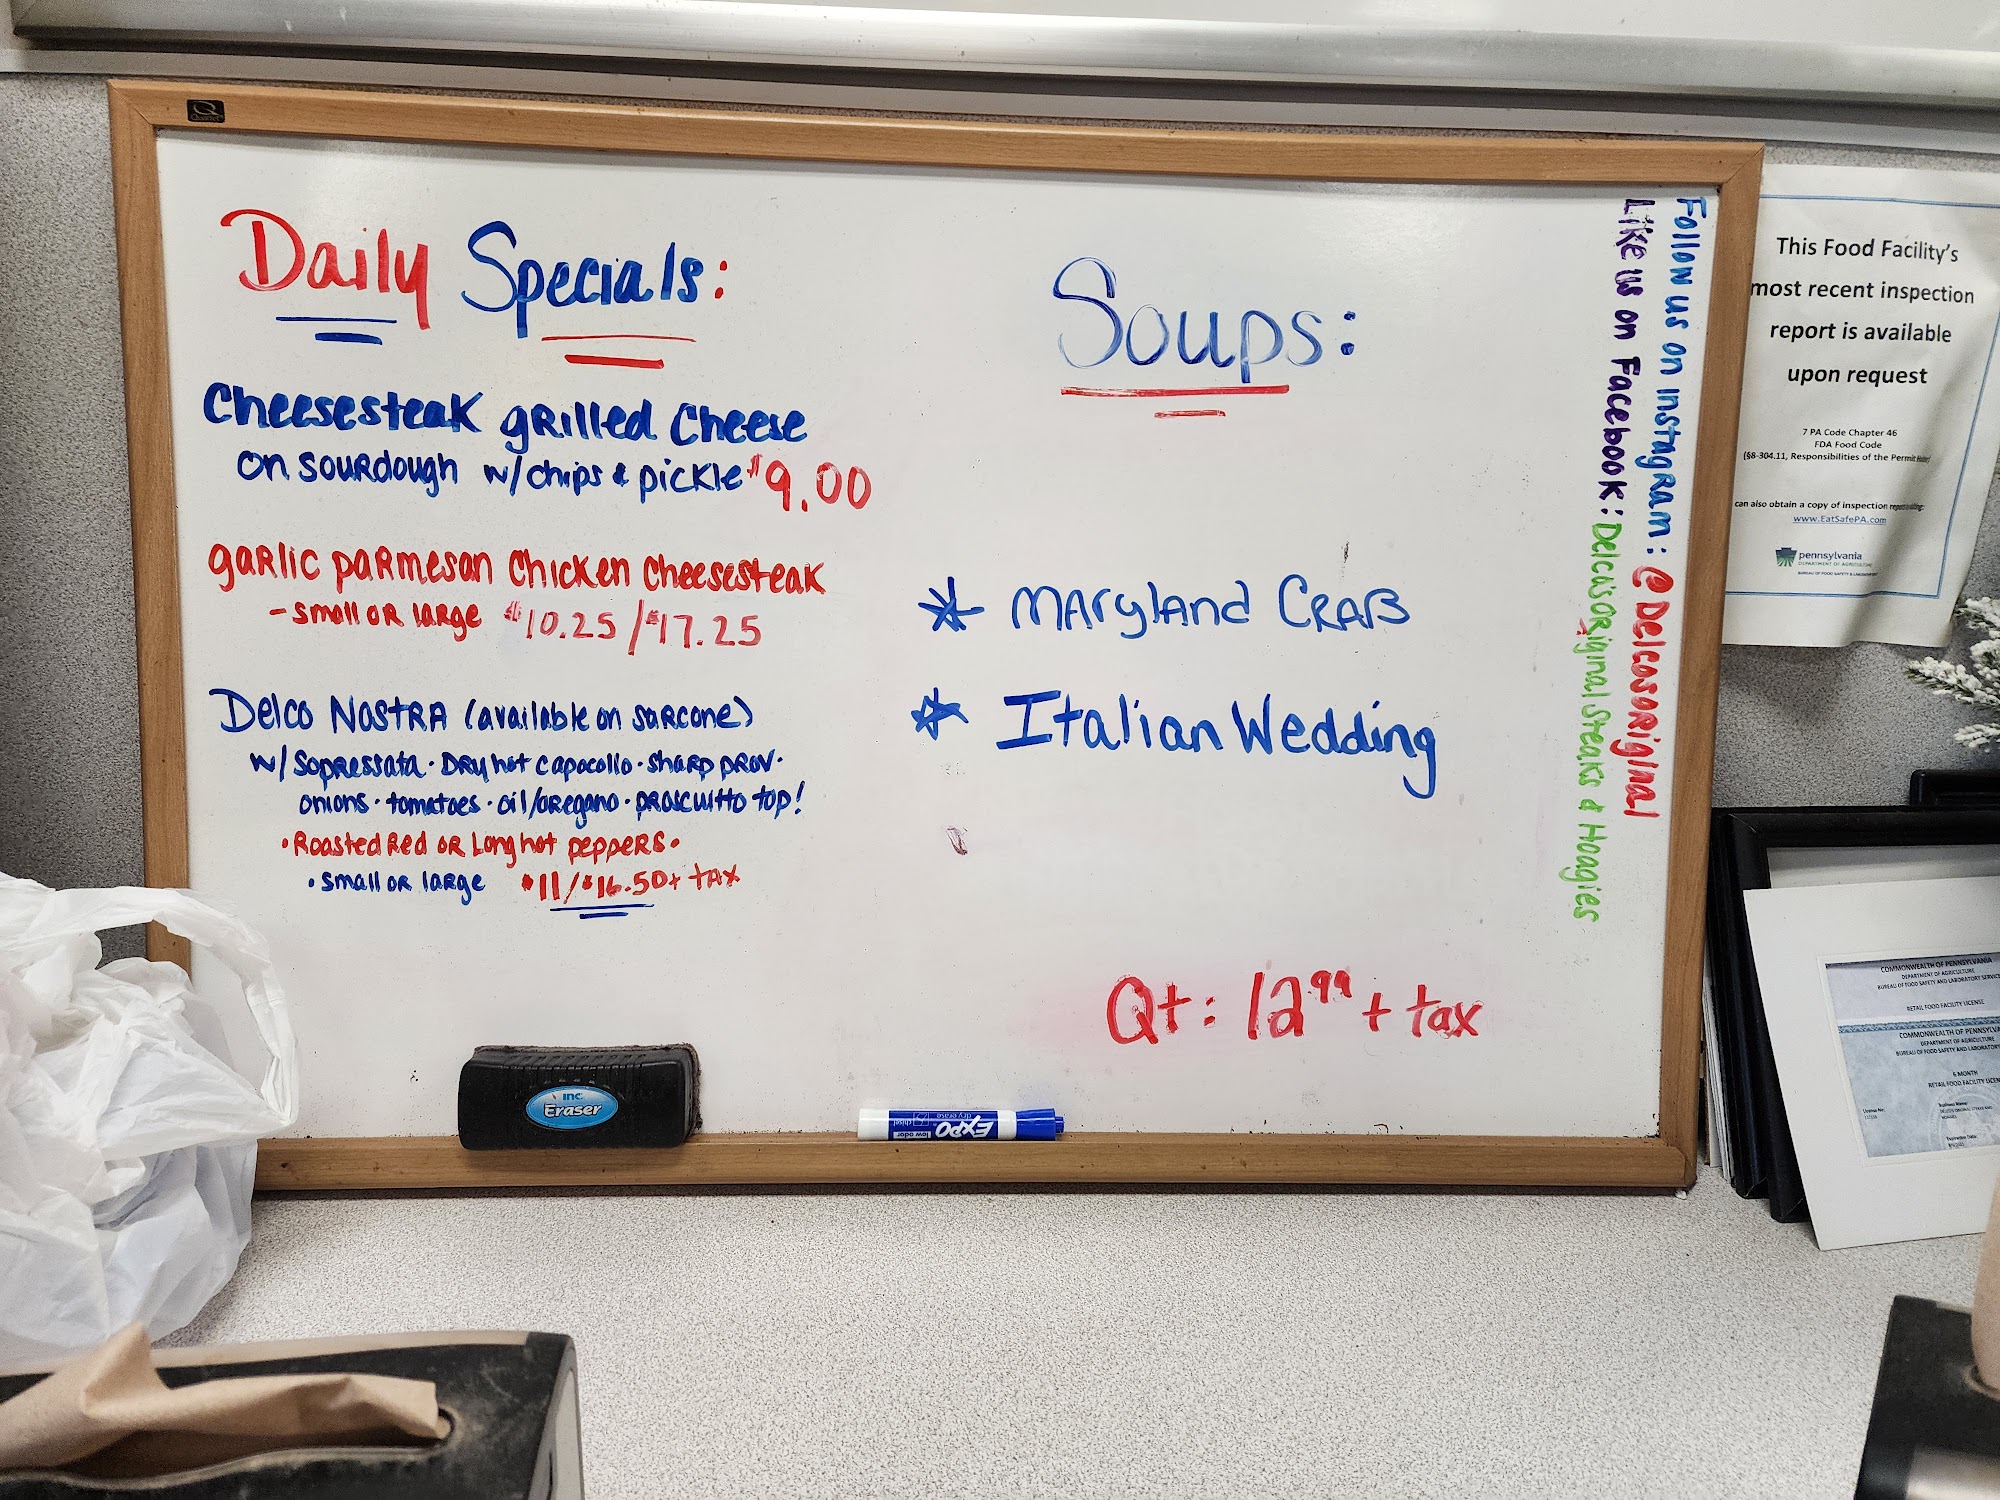 Daily Specials:
Cheesesteak grilled cheese
on sourdough w/chips & pickle $9.00
garlic parmesan chicken cheesesteak
- small or large $10.25/$17.25
Delco Nostra (available on sarcone)
w/ Sopressata · Dry hot capocollo · sharp prov ·
onions · tomatoes · oil/oregano · proscuitto top!
· Roasted Red or Long hot peppers ·
· small or large $11/$16.50 + tax
Soups:
Maryland Crab
Italian Wedding
Qt: 12⁹⁹ + tax
Follow us on instagram: @Delcosoriginal
Like us on Facebook: Delcasoriginal Steaks & Hoagies
inc.
Eraser
EXPO
low odor
dry erase
This Food Facility's
most recent inspection
report is available
upon request
7 PA Code Chapter 46
FDA Food Code
(§8-304.11, Responsibilities of the Permit Holder)
can also obtain a copy of inspection
www.EatSafePA.com
pennsylvania
DEPARTMENT OF AGRICULTURE
BUREAU OF FOOD SAFETY &
COMMONWEALTH OF PENNSYLVANIA
DEPARTMENT OF AGRICULTURE
BUREAU OF FOOD SAFETY AND LABORATORY SERVICE
RETAIL FOOD FACILITY LICENSE
COMMONWEALTH OF PENNSYLVA
DEPARTMENT OF AGRICULTURE
BUREAU OF FOOD SAFETY AND LABORATORY
6 MONTH
RETAIL FOOD FACILITY LICEN